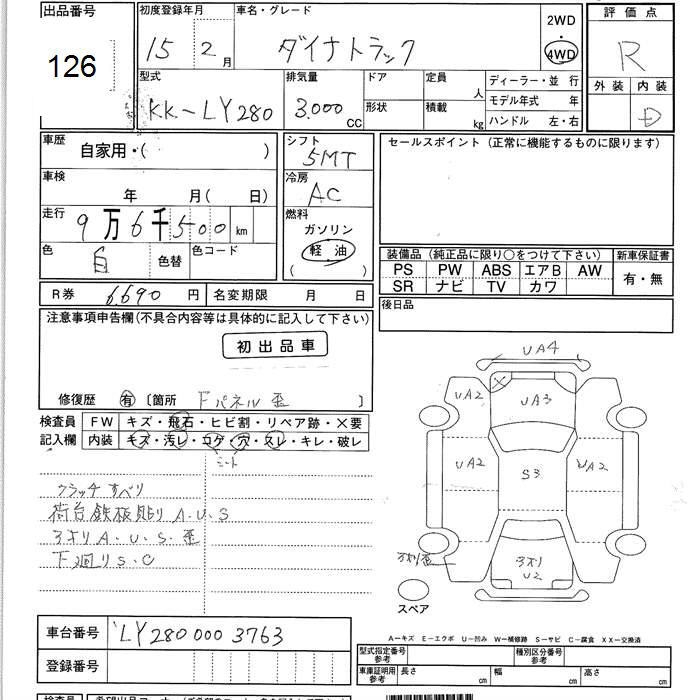 出品番号
126
初度登録年月
15 2月
車名・グレード
ダイナトラック
2WD
4WD
評価点
R
外装 内装
D
型式
KK-LY280
排気量
3.000 CC
ドア
形状
定員
人
積載
kg
ディーラー・並 行
モデル年式 年
ハンドル 左・右
車歴
自家用・( )
シフト
5MT
セールスポイント (正常に機能するものに限ります)
車検
年 月( 日)
冷房
AC
走行
9万6千500km
燃料
ガソリン
軽油
( )
色
白
色替
色コード
装備品 (純正品に限り○をつけて下さい)
新車保証書
PS PW ABS エアB AW
SR ナビ TV カワ
有・無
R券 6,690 円
名変期限 月 日
後日品
注意事項申告欄(不具合内容等は具体的に記入して下さい)
初出品車
修復歴 有 〔箇所 Fパネル歪 〕
検査員
記入欄
FW キズ・飛石・ヒビ割・リペア跡・×要
内装 キズ・汚レ・コゲ・穴・スレ・キレ・破レ
シート
クラッチすべり
荷台鉄板貼りA.U.S
3方リA.U.S.歪
下廻りS.C
UA4
UA2
UA3
UA2
S3
UA2
3方リ
U2
3方リ歪
スペア
車台番号
LY280 000 3763
登録番号
A-キズ E-エクボ U-凹み W-補修跡 S-サビ C-腐食 XX-交換済
型式指定番号
参考
種別区分番号
参考
車庫証明用
参考
長さ cm
幅 cm
高さ cm